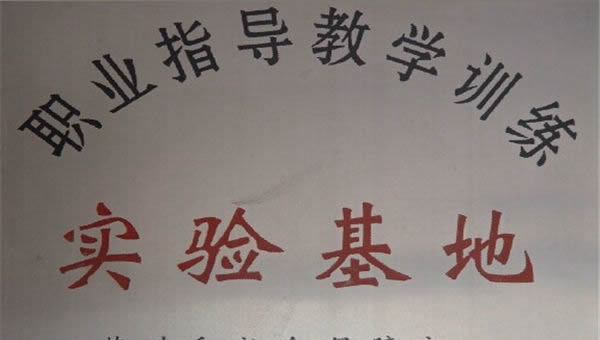 职业指导教学训练
实验基地